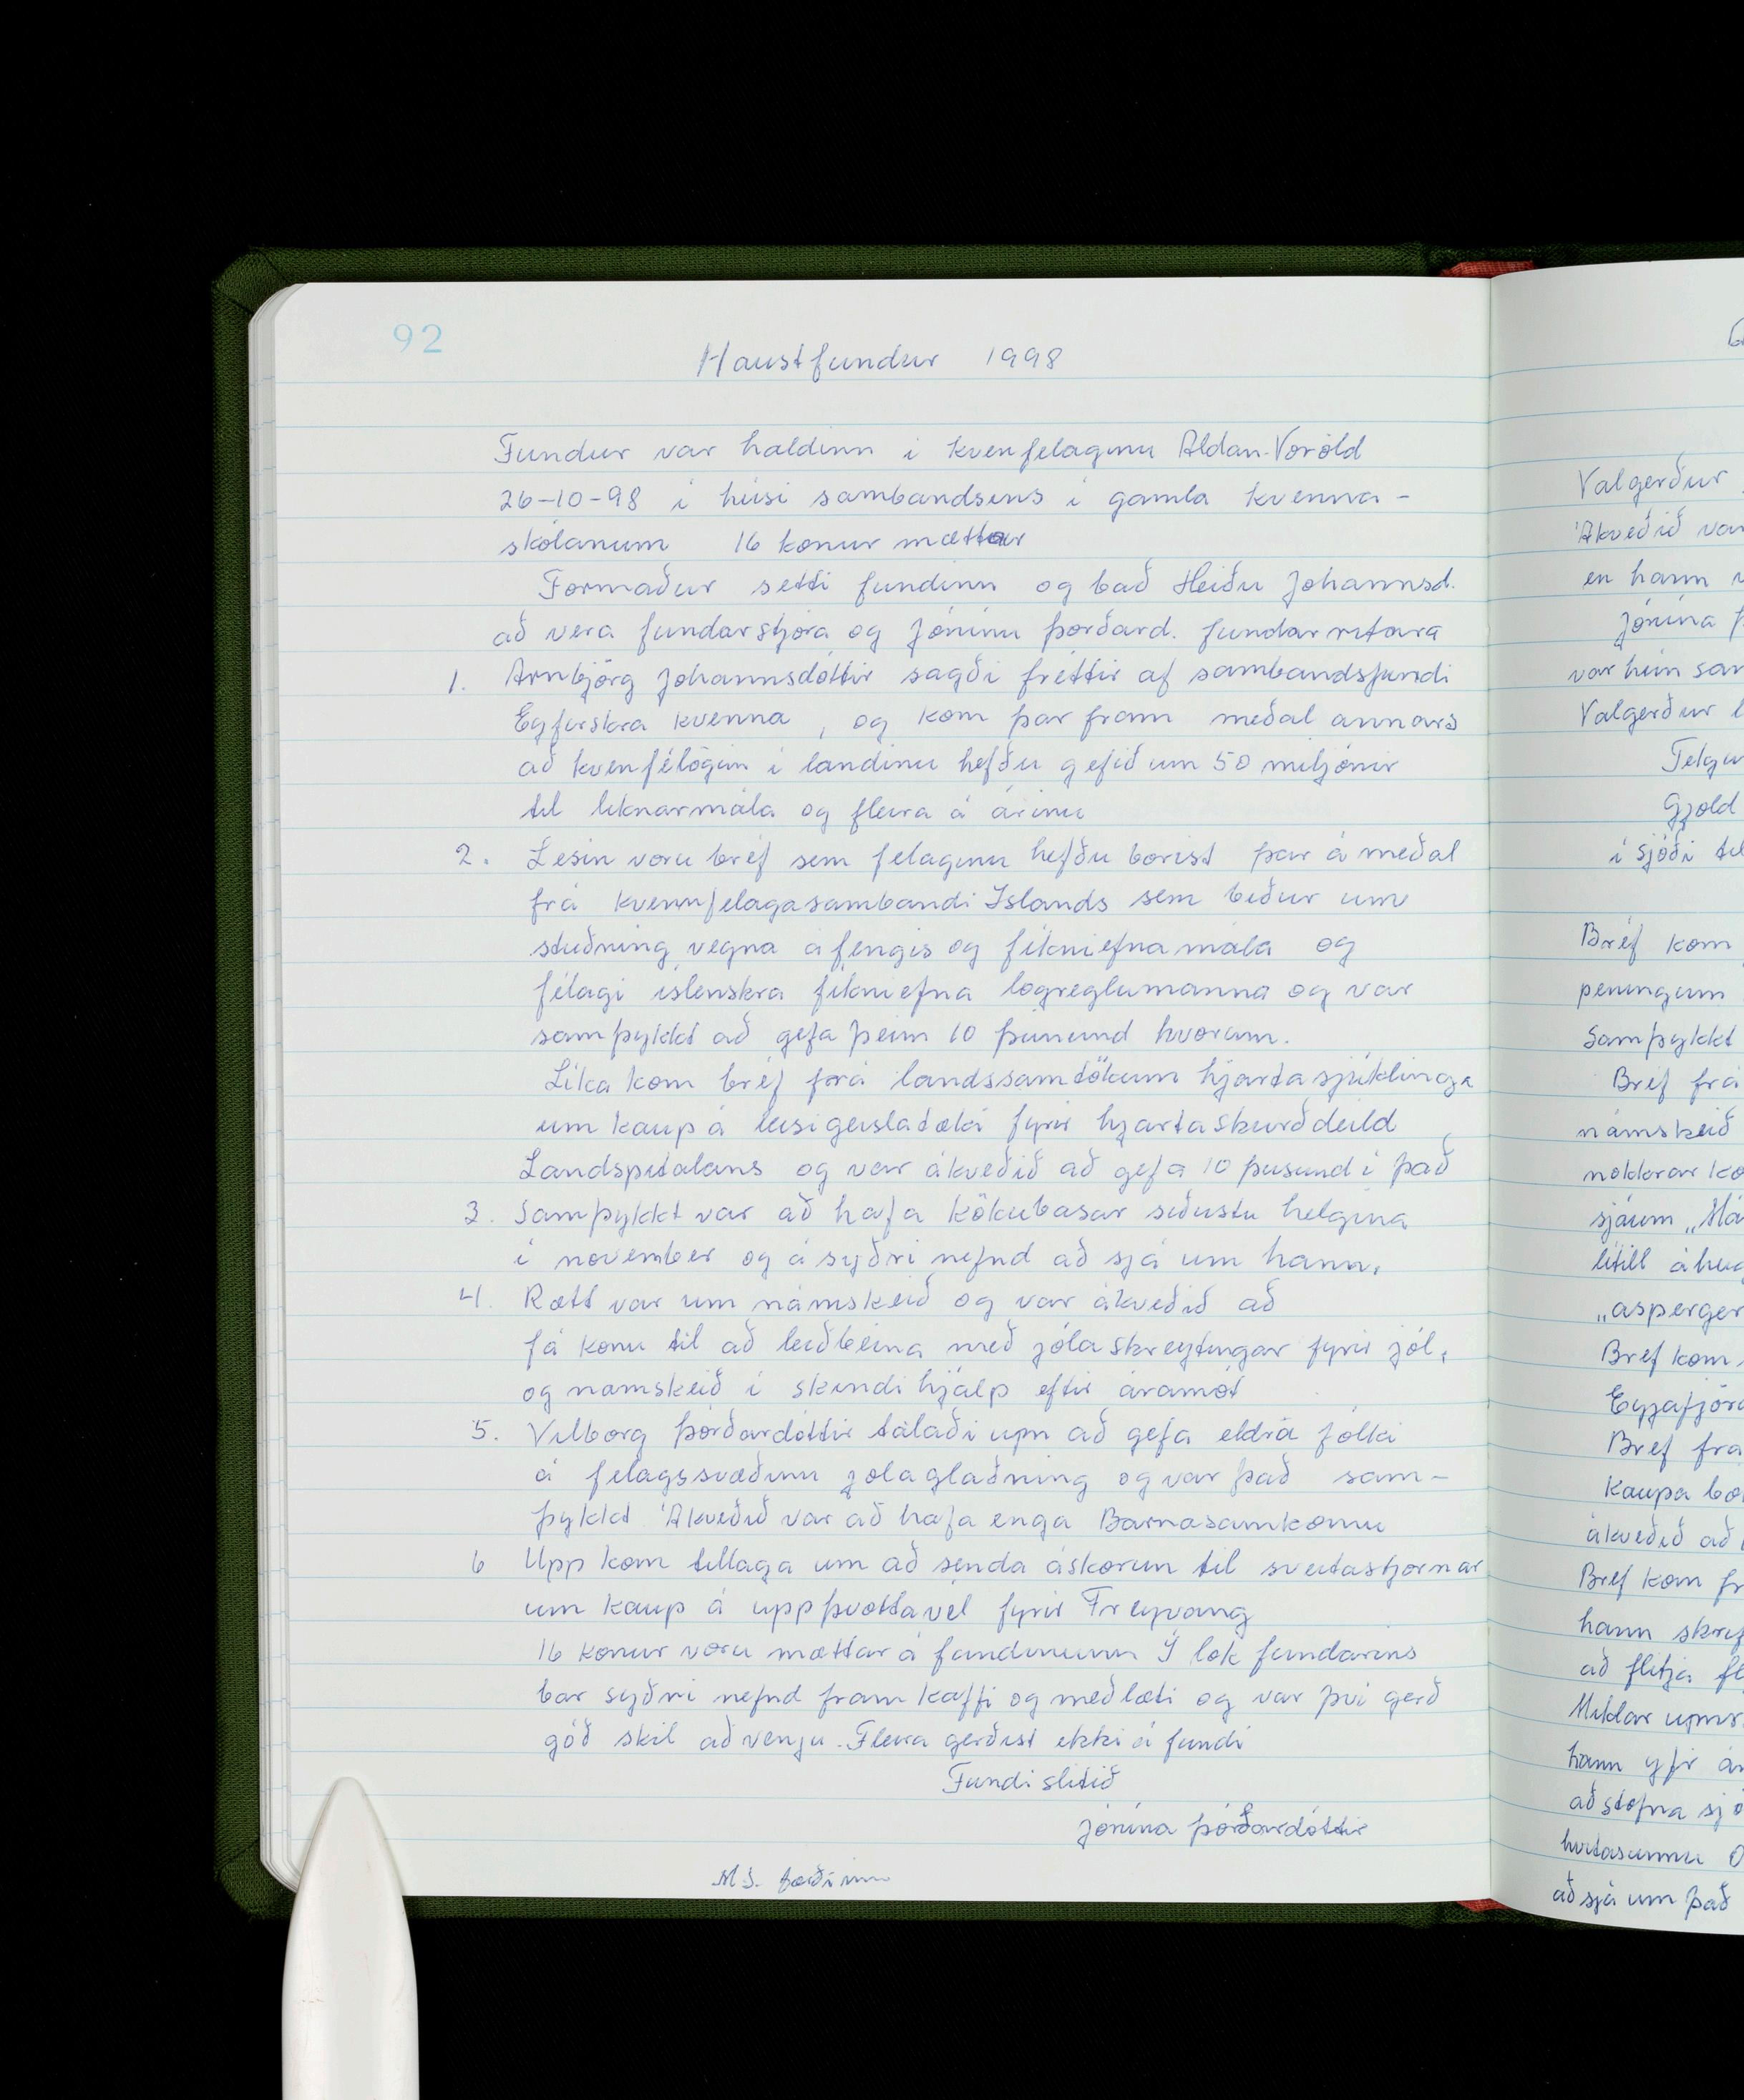 92
Haustfundur 1998
Fundur var haldinn i kvenfelaginu Aldan-Voröld
26-10-98 i húsi sambandsins i gamla kvenna-
skólanum 16 konur mættar
Formaður setti fundinn og bað Heiðu Johannsd.
að vera fundarstjóra og Jónínu þorðard. fundarritara
1. Arnbjörg Johannsdóttir sagði fréttir af sambandsfundi
Eyfirskra kvenna, og kom þar fram meðal annars
að kvenfélögin i landinu hefðu gefið um 50 miljónir
til liknarmála og fleira á árinu
2. Lesin voru bréf sem felaginu hefðu borist þar á meðal
frá kvennfelagasambandi Islands sem biður um
stuðning vegna áfengis og fikniefnamála og
félagi islenskra fikniefna logreglumanna og var
samþykkt að gefa þeim 10 þúsund hvorum.
Lika kom bréf frá landssamtökum hjartasjúklinga
um kaup á leisigeislatæki fyrir hjartaskurðdeild
Landspitalans og var ákveðið að gefa 10 þusund i það
3. Samþykkt var að hafa kökubasar siðustu helgina
i november og á syðri nefnd að sjá um hann.
4. Rætt var um námskeið og var ákveðið að
fá konu til að leiðbeina með jólaskreytingar fyrir jól,
og namskeið i skindihjálp eftir áramót
5. Vilborg þórðardóttir talaði um að gefa eldra fólki
á felagssvæðinu jolaglaðning og var það sam-
þykkt Ákveðið var að hafa enga Barnasamkomu
6 Upp kom tillaga um að senda áskorun til sveitastjornar
um kaup á uppþvottavél fyrir Freyvang
16 konur voru mættar á fundinum Í lok fundarins
bar syðri nefnd fram kaffi og meðlæti og var þvi gerð
góð skil að venju. Fleira gerðist ekki á fundi
Fundi slitið
Jónína þórðardóttir
Valgerður
Ákveðið var
en hann
Jónína
var hún
Valgerður
Gjold
i sjóði
Bréf kom
peningum
Samþykkt
Bréf frá
námskeið
nokkrar
sjáum
litill
„asperger
Bref kom
Bref frá
kaupa
ákveðið að
Bref kom
hann
að flitja
Miklar
hann yfir
að stofna
að sjá um það